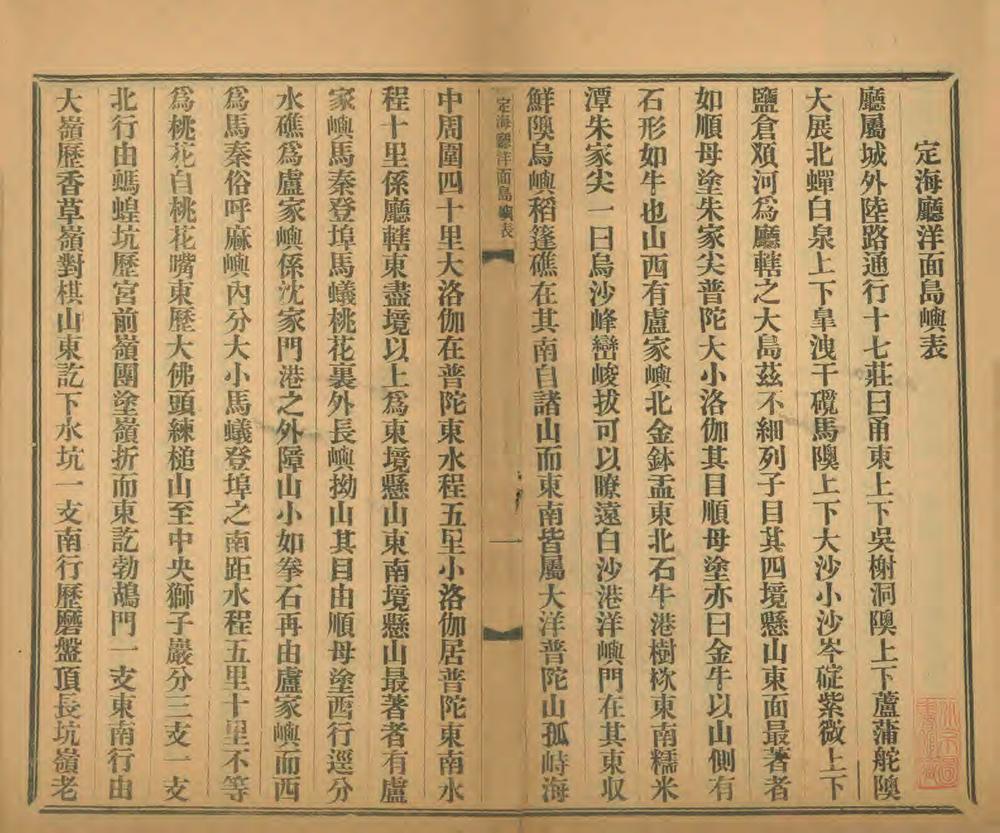 定海廳洋面島嶼表
廳屬城外陸路通行十七莊曰甬東上下吳榭洞隩上下蘆蒲舵隩
大展北蟬白泉上下臯洩干𥗽馬隩上下大沙小沙岑碇紫微上下
鹽倉䪴河爲廳轄之大島茲不細列子目其四境懸山東面最著者
如順母塗朱家尖普陀大小洛伽其目順母塗亦曰金牛以山側有
石形如牛也山西有盧家嶼北金鉢盂東北石牛港樹栨東南糯米
潭朱家尖一曰烏沙峰巒峻拔可以瞭遠白沙港洋嶼門在其東収
鮮隩烏嶼稻篷礁在其南自諸山而東南皆屬大洋普陀山孤峙海
定海廳洋面島嶼表
一
中周圍四十里大洛伽在普陀東水程五里小洛伽居普陀東南水
程十里係廳轄東盡境以上爲東境懸山東南境懸山最著者有盧
家嶼馬秦登埠馬蟻桃花裏外長嶼拗山其目由順母塗西行逕分
水礁爲盧家嶼係沈家門港之外障山小如拳石再由盧家嶼而西
爲馬秦俗呼麻嶼內分大小馬蟻登埠之南距水程五里十里不等
爲桃花白桃花嘴東歷大佛頭練槌山至中央獅子巖分三支一支
北行由螞蝗坑歷宮前嶺團塗嶺折而東訖勃鴣門一支東南行由
大嶺歷香草嶺對棋山東訖下水坑一支南行歷磨盤頂長坑嶺老